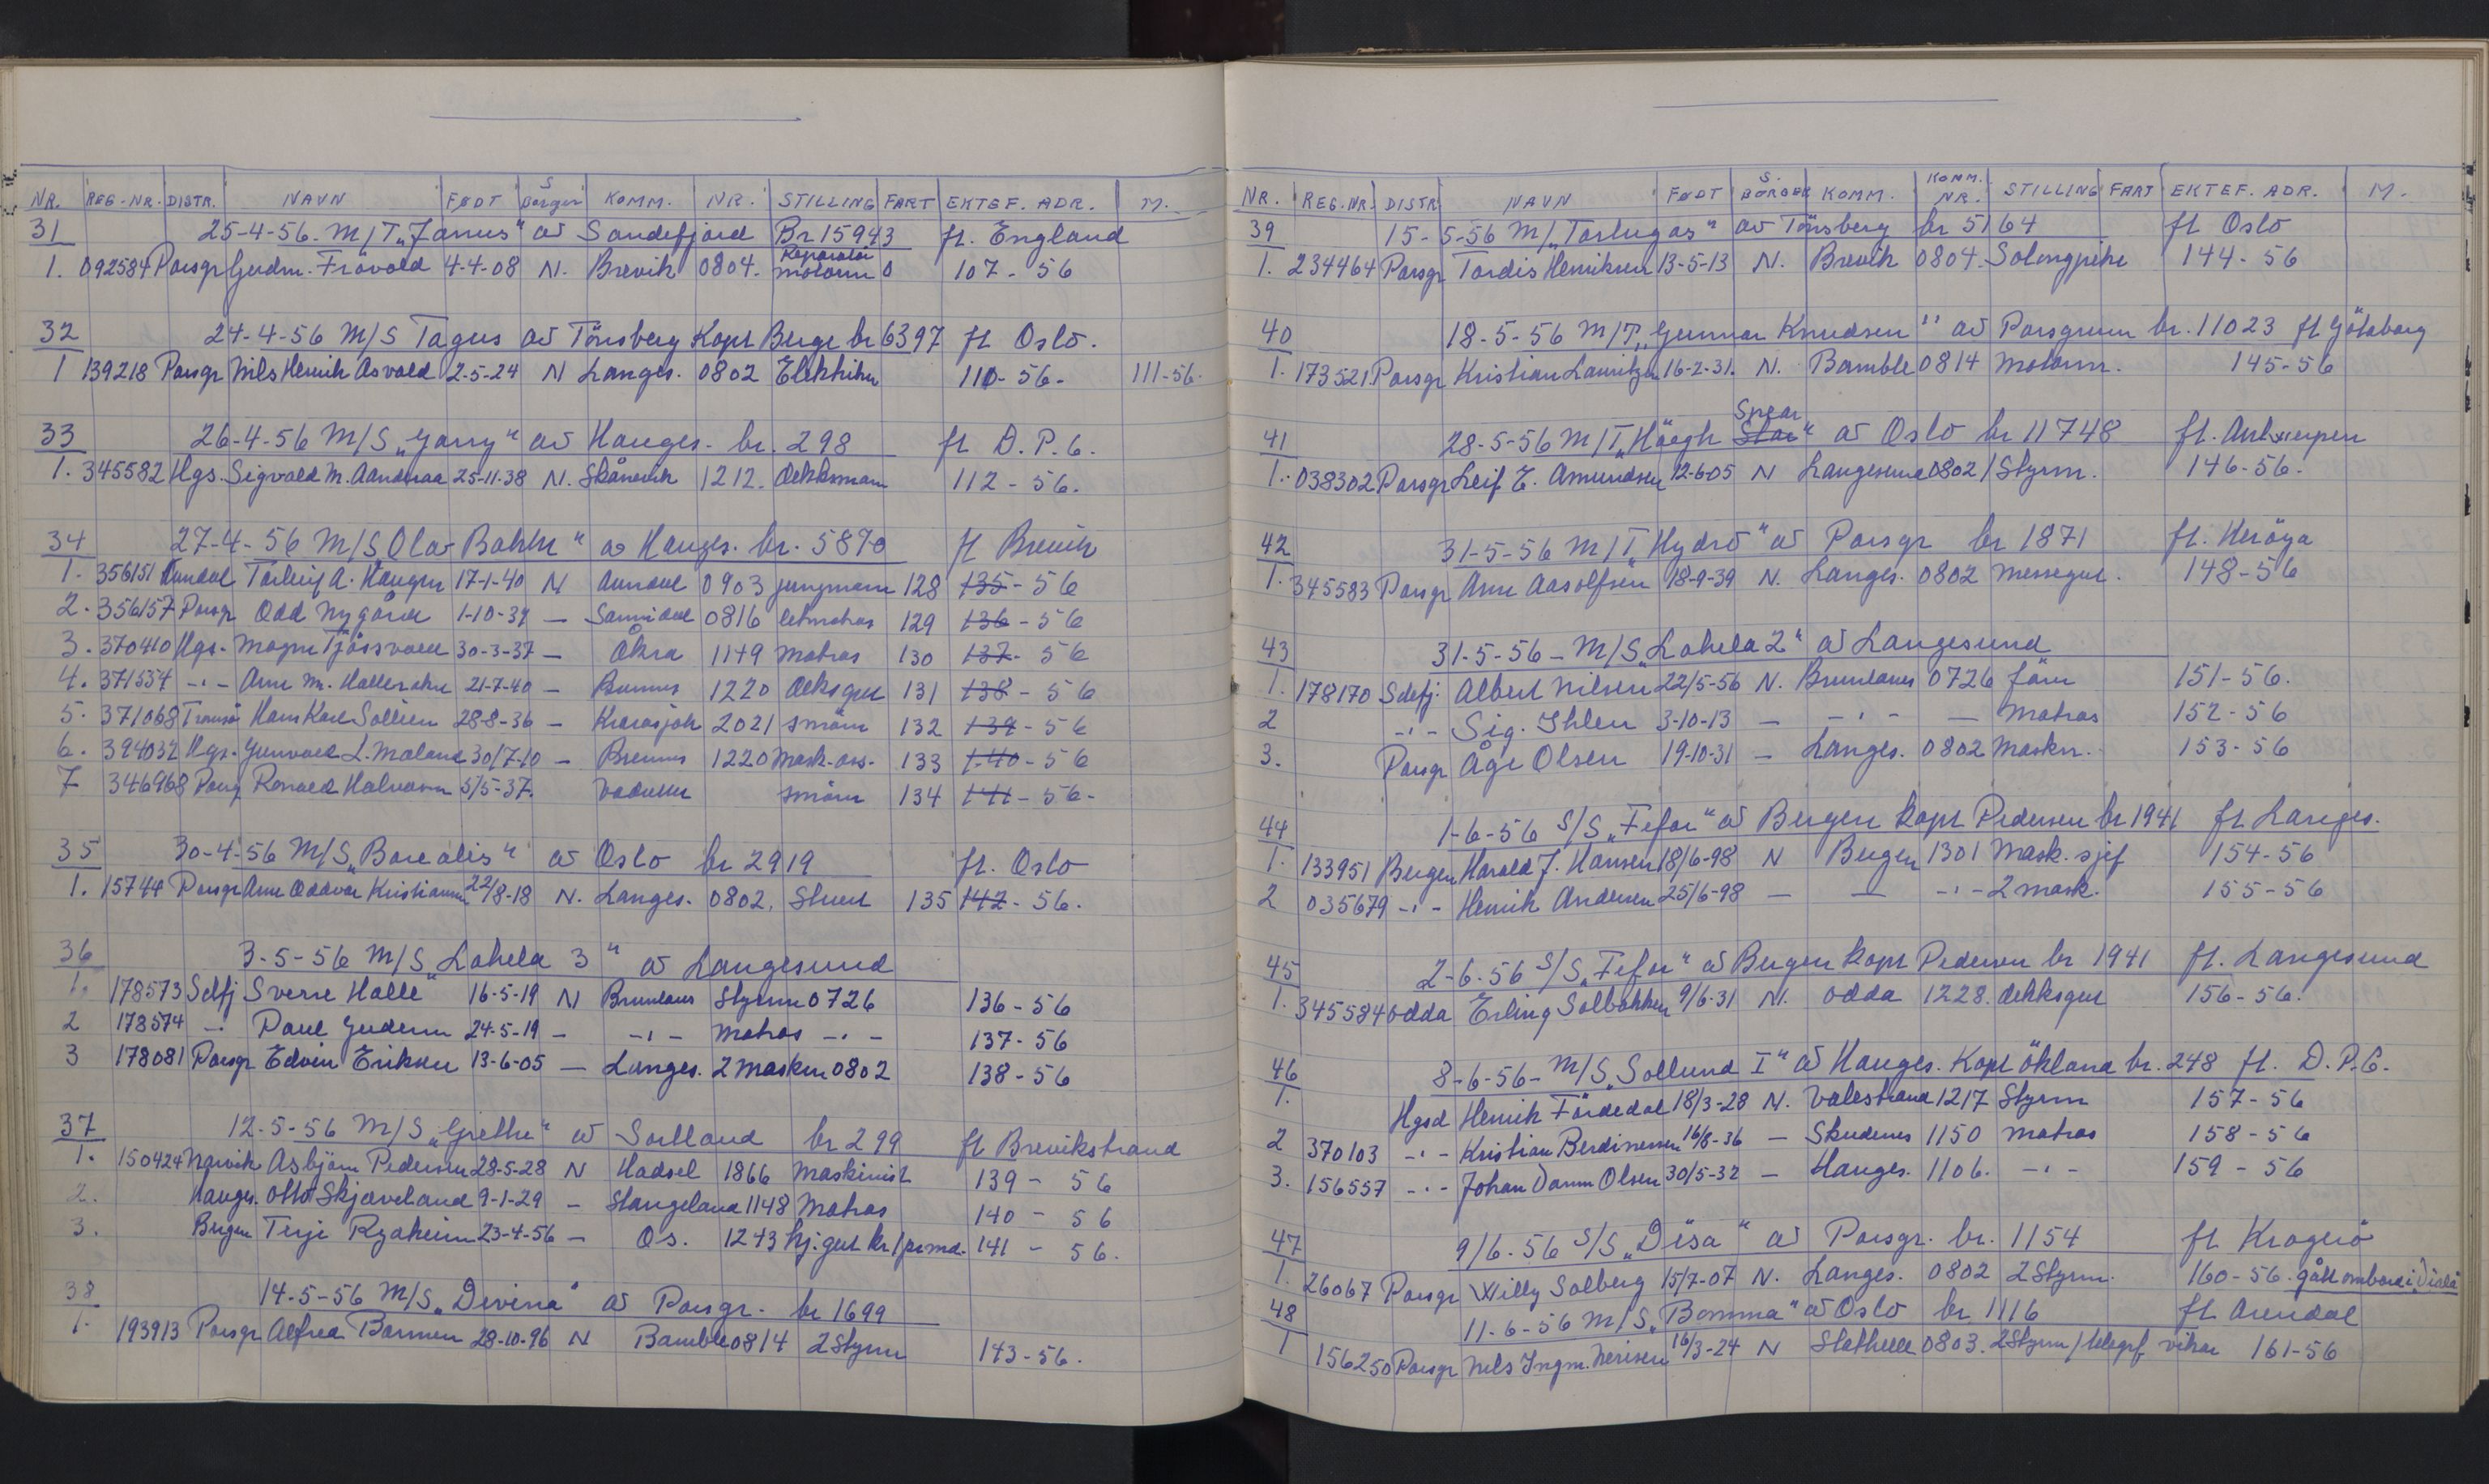 NR. REG-NR. DISTR. NAVN FØDT S borger KOMM. NR. STILLING FART EKTEF. ADR. M.
31 25-4-56. M/T „Janus" av Sandefjord Br 15943 ft. England
1. 092584 Porsgr Gudm. Frövold 4-4-08 N. Brevik 0804. Reparatör motorm 0 107-56
32 24-4-56 M/S Tagus av Tönsberg Kapt Berge br 6397 ft Oslo.
1 139218 Porsgr Nils Henrik Asvald 2-5-24 N Langes. 0802 Elektriker 110-56- 111-56-
33 26-4-56 M/S „Garry" av Hauges. br. 298 ft D.P.G.
1. 345582 Hgs. Sigvald M. Aandraa 25-11-38 N. Skånevik 1212. dekksmann 112-56.
34 27-4-56 M/S Olav Bakke" av Hauges. br. 5870 ft Brevik
1. 356151 Arendal Torleif A. Haugen 17-1-40 N Arendal 0903 jungmann 128 135-56
2. 356157 Porsgr Odd Nygård 1-10-39 — Sannidal 0816 letmatros 129 136-56
3. 370410 Hgs. Magne Tjösvoll 30-3-37 — Åkra 1149 matros 130 137-56
4. 371554 -"- Arne M. 21-7-40 — Bremnes 1220 deksgut 131 138-56
5. 371068 Tromsö Hans Karl Sollien 28-8-36 — Karasjok 2021 smörer 132 139-56
6. 394032 Hgs. Gunvald L. Maland 30/7-10 — Bremnes 1220 Mask-ass. 133 140-56
7 346968 Porsg Ronald Halvorsen 5/5-37. smörer 134 141-56-
35 30-4-56 M/S „Borealis" av Oslo br 2919 ft. Oslo
1. 15744 Porsgr Arne Oddvar Kristiansen 22/8-18 N. Langes. 0802. Stuert 135 142-56.
36 3-5-56 M/S „Lakela 3" av Langesund
1. 178573 Sdfj Sverre Halle 16-5-19 N Brunlanes Styrm 0726 136-56
2 178574 -"- Paul Gudem 24-5-19 — -"- Matros -"- 137-56
3 178081 Porsgr Edvin Eriksen 13-6-05 — Langes. 2 maskm 0802 138-56
37 12-5-56 M/S „Grethe" av Sortland br 299 ft Brevikstrand
1. 150424 Narvik Asbjörn Pedersen 28-5-28 N Hadsel 1866 Maskinist 139-56
2. Hauges. Otto Skjæveland 9-1-29 — Stangeland 1148 Matros 140-56
3. Bergen Terje Rydheim 23-4-56 — Os. 1243 hj.gut kr 1 pr md. 141-56.
38 14-5-56 M/S „Devina" av Porsgr. br 1699
1. 193913 Porsgr Alfred Barmen 28-10-96 N Bamble 0814 2 Styrm 143-56.
NR. REG.NR. DISTR NAVN FØDT S. BORGER KOMM. KOMM. NR. STILLING FART EKTEF. ADR. M.
39 15-5-56 M/„Tarlugas" av Tönsberg br 5164 ft Oslo
1. 234464 Porsgr Tordis Henriksen 13-5-13 N. Brevik 0804. Salongpike 144-56
40 18-5-56 M/T „Gunnar Knudsen" av Porsgrunn br. 11023 ft Göteborg
1. 173521 Porsgr Kristian Lauritzen 16-2-31. N. Bamble 0814 motorm. 145-56
41 28-5-56 M/T „Höegh Star Spear" av Oslo br 11748 ft. Antwerpen
1. 038302 Porsgr Leif E. Amundsen 12-6-05 N Langesund 0802 1 Styrm. 146-56.
42 31-5-56 M/T „Hydro" av Porsgr br 1871 ft. Heröya
1. 345583 Porsgr Arne Aasolfsen 18-9-39 N. Langes. 0802 messegut. 148-56
43 31-5-56 - M/S „Lakela 2" av Langesund
1. 178170 Sdefj. Albert Nilsen 22/5-56 N. Brunlanes 0726 förer 151-56.
2 -"- Sig. Ihlen 3-10-13 — -"- — Matros 152-56
3. Porsgr Åge Olsen 19-10-31 — Langes. 0802 Maskm. 153-56
44 1-6-56 S/S „Fefor" av Bergen kapt Pedersen br 1941 ft Langes.
1. 133951 Bergen Harald J. Hansen 18/6-98 N Bergen 1301 Mask. sjef 154-56
2 035679 -"- Henrik Andersen 25/6-98 — — -"- 2 mask. 155-56
45 2-6-56 S/S „Fefor" av Bergen kapt Pedersen br 1941 ft. Langesund
1. 345584 Odda Erling Solbakken 9/6-31 N. Odda 1228. dekksgut 156-56.
46 8-6-56 - M/S „Sollund I" av Hauges. Kapt Ökland br. 248 ft. D.P.G.
1. Hgsd Henrik Fördedal 18/3-28 N. Valestrand 1217 Styrm 157-56
2 370103 -"- Kristian Berdinesen 16/8-36 — Skudenes 1150 matros 158-56
3. 156557 -"- Johan Damm Olsen 30/5-32 — Hauges. 1106. -"- 159-56
47 9/6-56 S/S „Disa" av Porsgr. br. 1154 ft Kragerö
1. 26067 Porsgr Willy Solberg 15/7-07 N. Langes. 0802 2 Styrm. 160-56. gått ombord i
48 11-6-56 M/S „Bomma" av Oslo br 1116 ft Arendal
1 156250 Porsgr Nils Ingm. Iversen 16/3-24 N Stathelle 0803. 2 Styrm/telegrf vikar 161-56